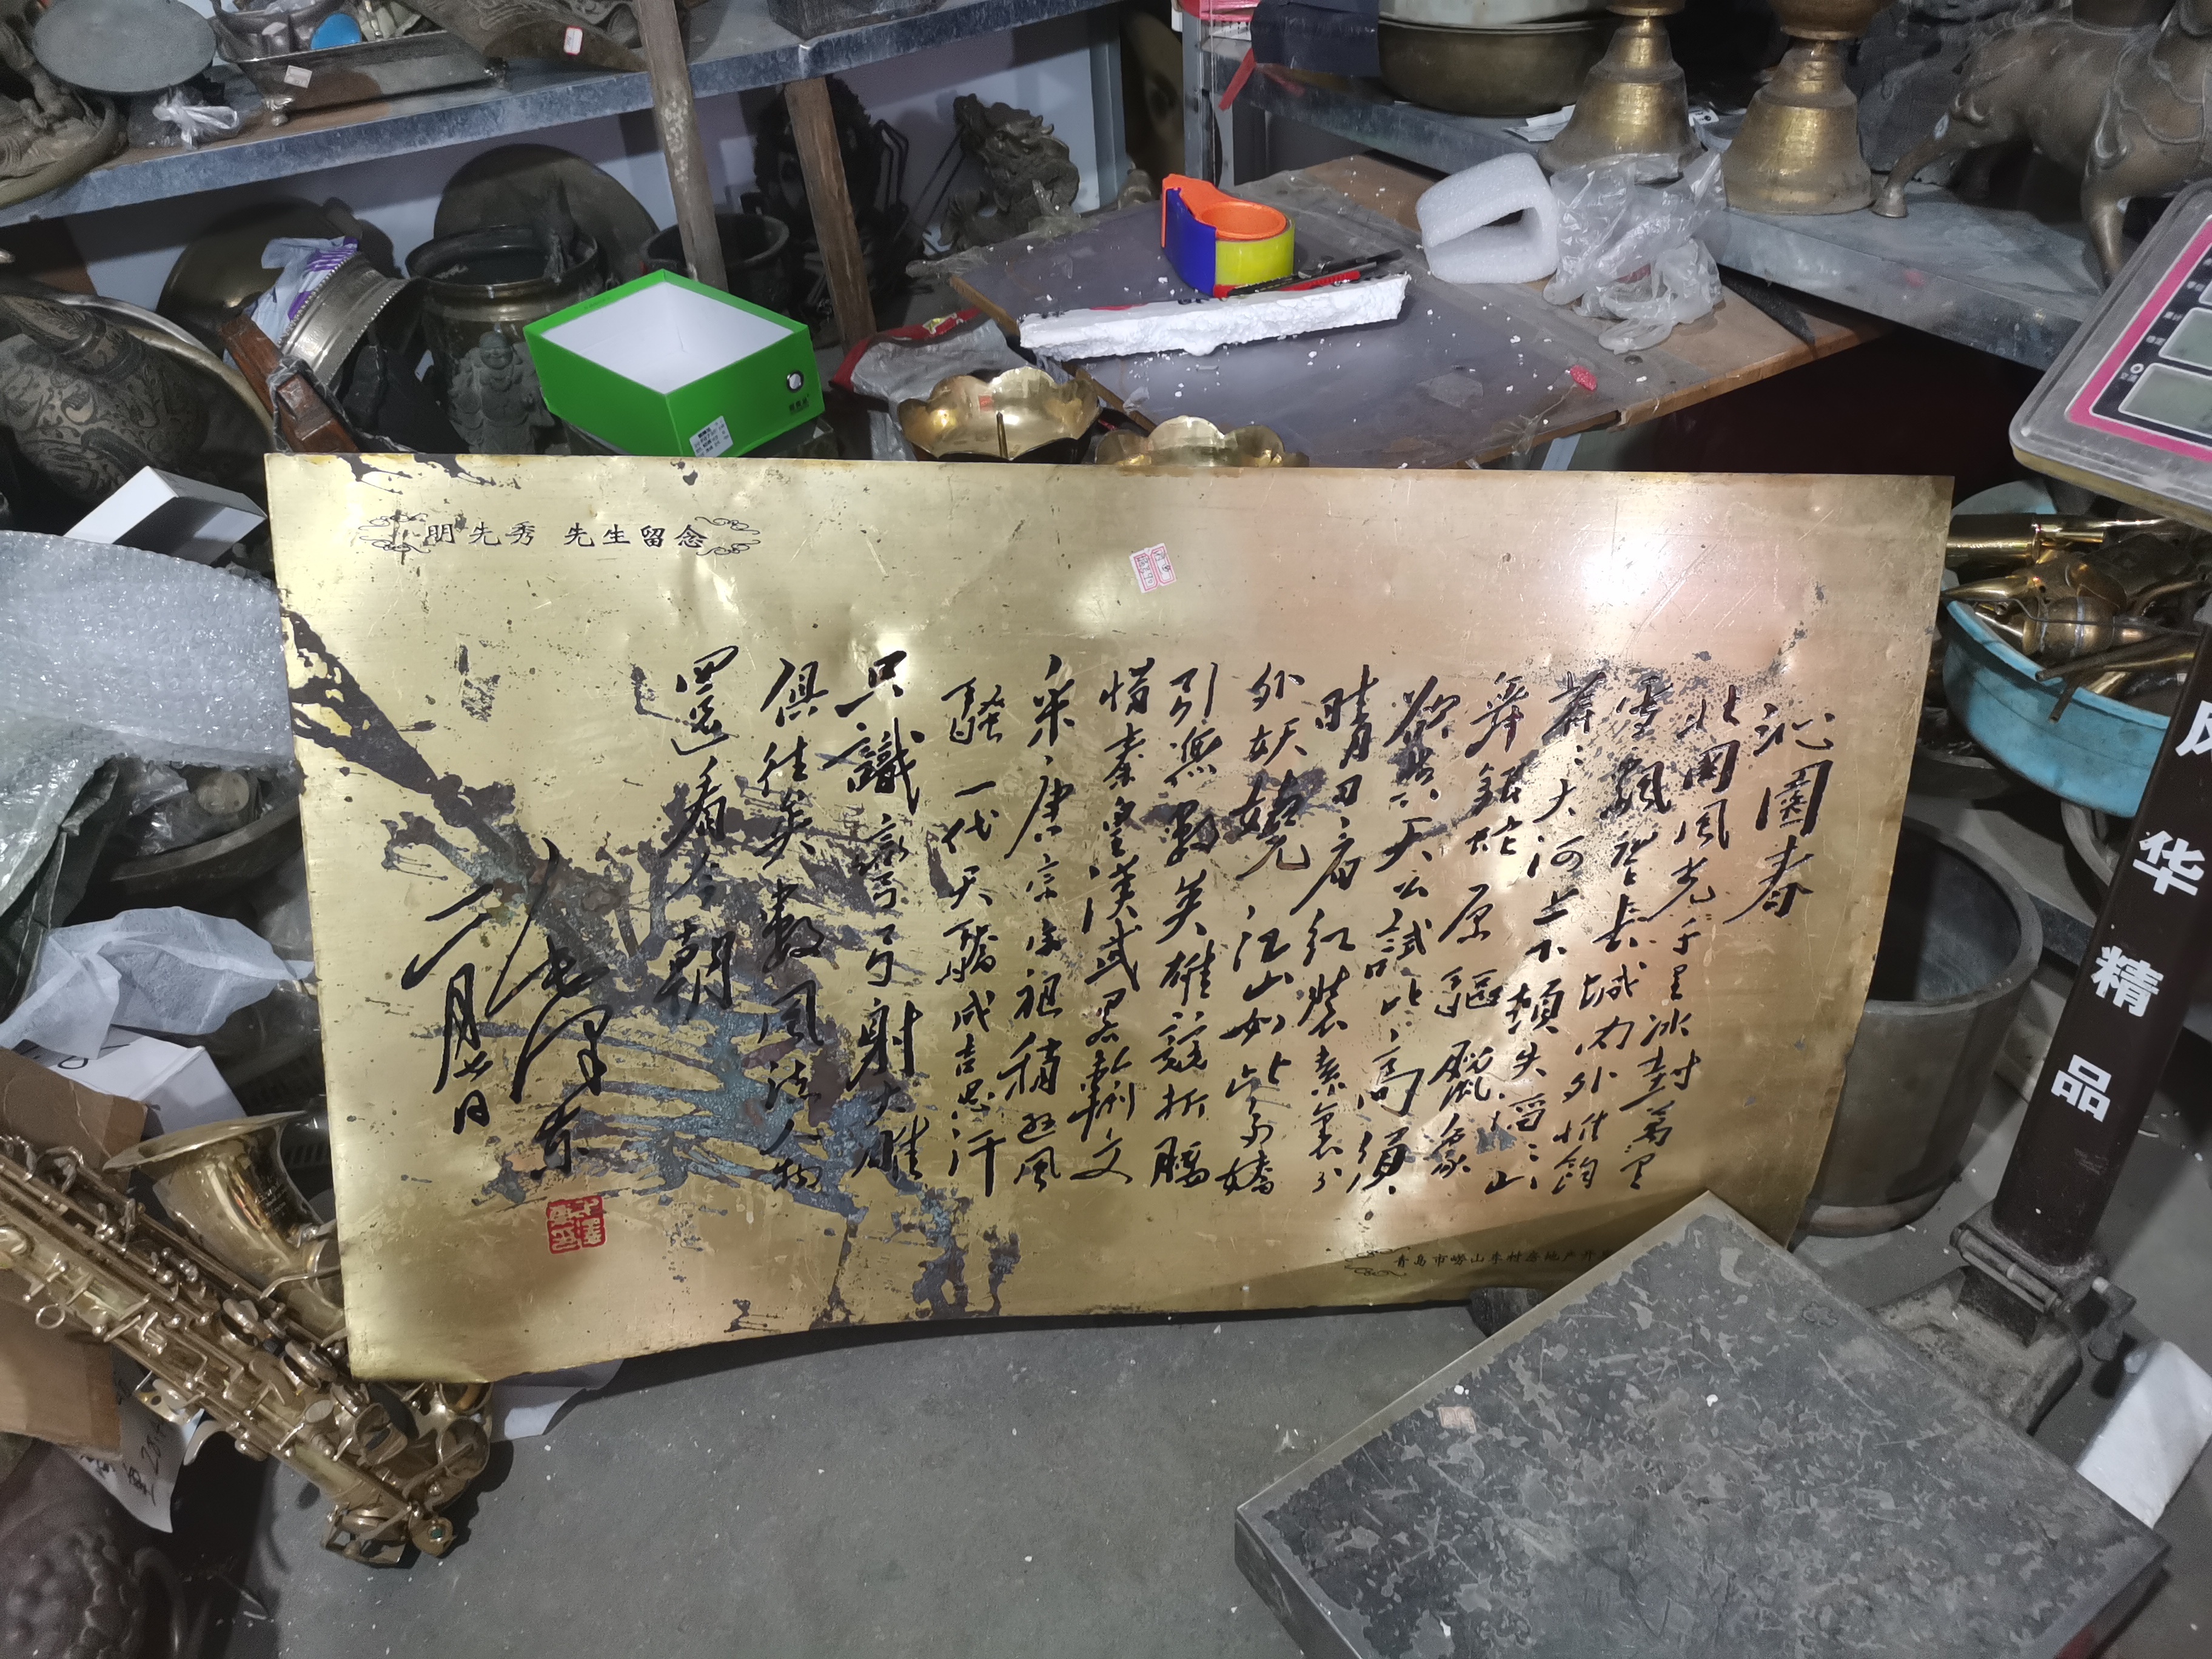 明先秀 先生留念
沁園春
北国風光千里冰封萬里
雪飄望长城内外惟餘
莽々大河上下頓失滔々山
舞銀蛇原驅臘象
欲與天公試比高須
晴日看红装素裹分
外妖娆江山如此多嬌
引無數英雄競折腰
惜秦皇漢武略輸文
采唐宗宋祖稍逊風
騷一代天驕成吉思汗
只識彎弓射大雕
俱往矣數風流人物
還看今朝
毛泽东
二月七日
青岛市崂山东村房地产开
华精品